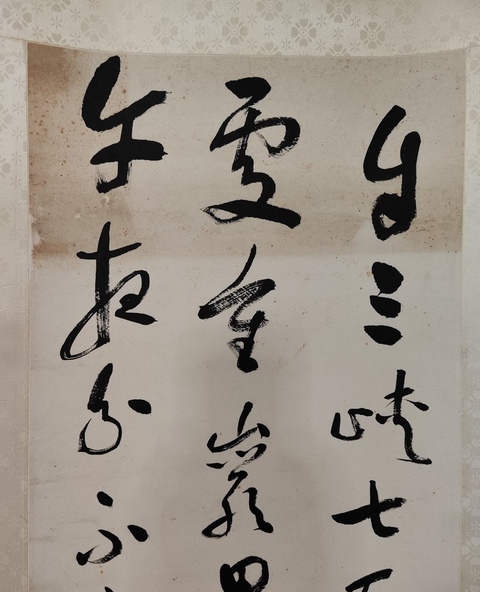 自三峽七
處重巖
午夜分不